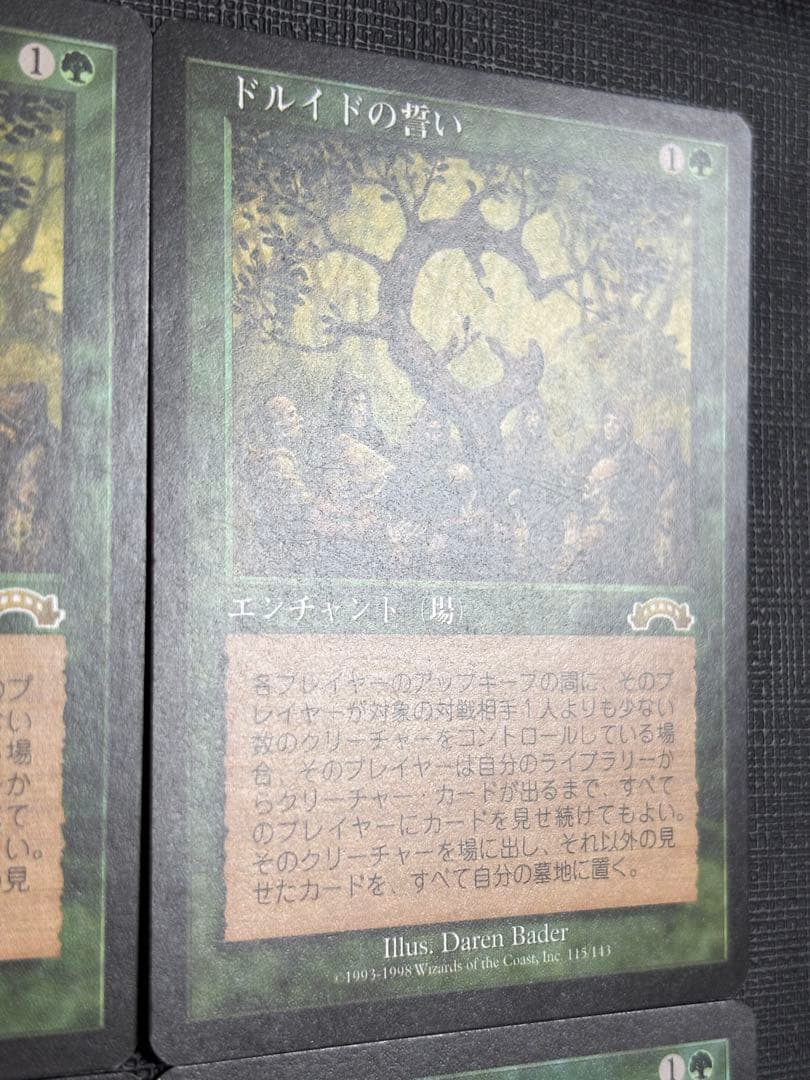 1
ドルイドの誓い
1
エンチャント（場）
各プレイヤーのアップキープの間に、そのプ
レイヤーが対象の対戦相手１人よりも少ない
数のクリーチャーをコントロールしている場
合、そのプレイヤーは自分のライブラリーか
らクリーチャー・カードが出るまで、すべて
のプレイヤーにカードを見せ続けてもよい。
そのクリーチャーを場に出し、それ以外の見
せたカードを、すべて自分の墓地に置く。
Illus. Daren Bader
©1993-1998 Wizards of the Coast, Inc. 115/143
のプ
ない
場
か
て
い。
見
1